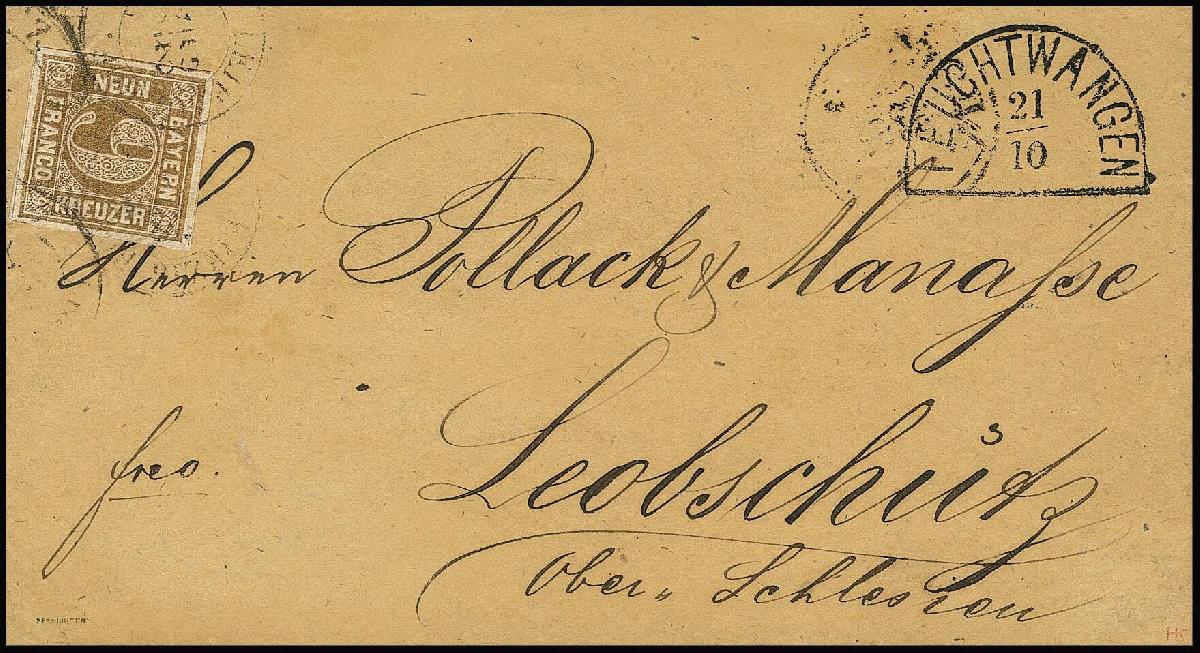 NEUN
BAYERN
FRANCO
9
KREUZER
FEUCHTWANGEN
21
10
Herren Pollack & Manaſse
frco.
Leobschütz
Ober„ Schlesien